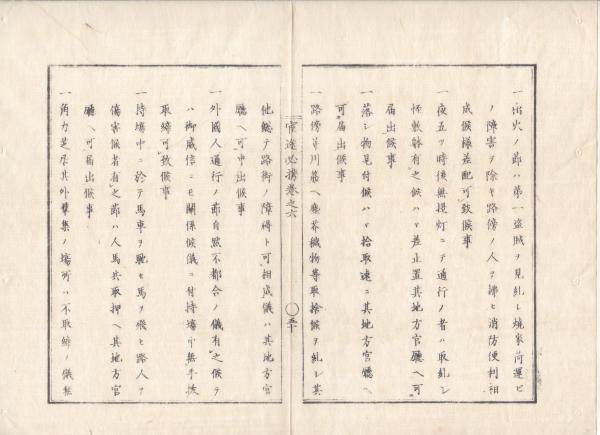 一出火ノ節ハ第一盗賊ヲ見糺シ焼家荷運ヒ
ノ障害ヲ除キ路傍ノ人ヲ拂ヒ消防便利相
成候様差配可致候事
一夜五ツ時後無提灯ニテ通行ノ者ハ取糺シ
怪敷躰有之候ハヽ差止置其地方官廳ヘ可
届出候事
一落シ物見付候ハヽ拾取速ニ其地方官廳ヘ
可届出候事
一路傍并川筋ヘ塵芥穢物等取捨候ヲ糺シ其
官途必携巻之六
〇五十
他総テ路街ノ障碍ト可相成儀ハ其地方官
廳ヘ可申出候事
一外國人通行ノ節自然不都合ノ儀有之候テ
ハ御威信ニモ關係候儀ニ付持場中無手抜
取締可致候事
一持場中ニ於テ馬車ヲ馳セ馬ヲ飛セ路人ヲ
傷害候者有之節ハ人馬共取押ヘ其地方官
廳ヘ可届出候事
一角力芝居其外群集ノ場所ハ不取締ノ儀無